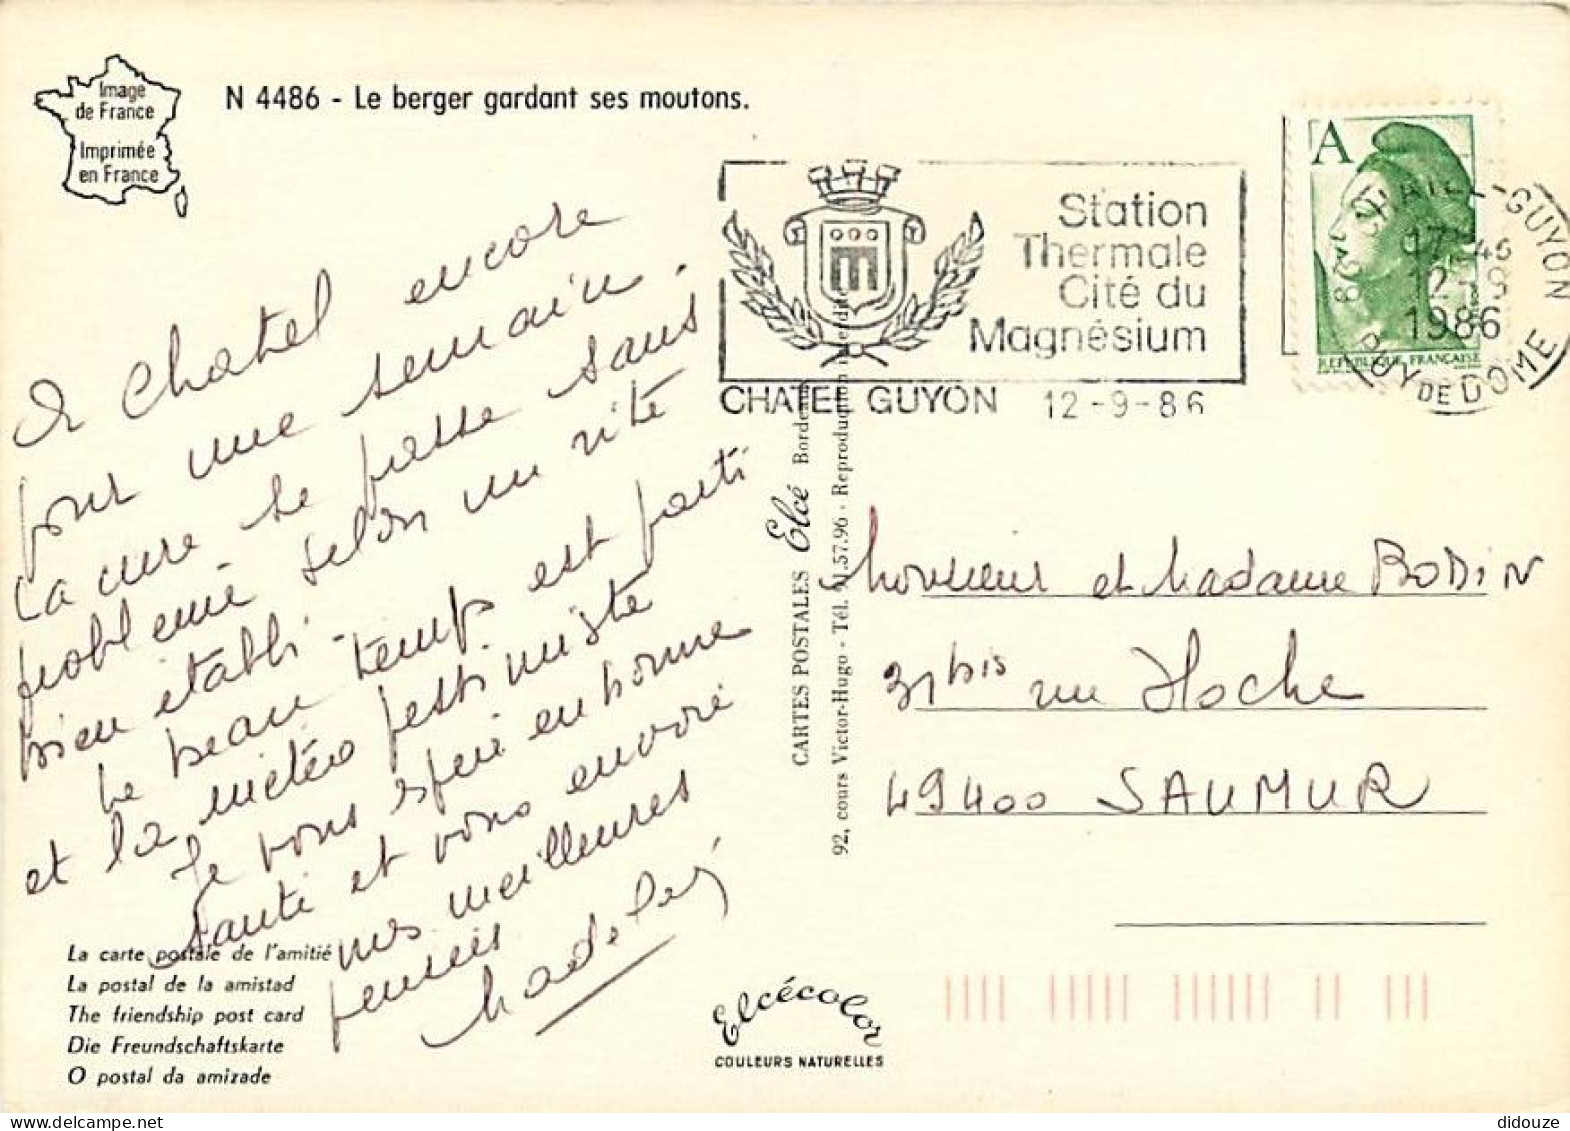 Image
de France
Imprimée
en France
N 4486 - Le berger gardant ses moutons.
A Chatel encore
pour une semaine.
La cure se passe sans
problème selon un rite
bien établi -
Le beau temps est parti
et la météo pessimiste
Je vous espère en bonne
santé et vous envoie
mes meilleures
pensées
La carte postale de l'amitié
La postal de la amistad
The friendship post card
Die Freundschaftskarte
O postal da amizade
CARTES POSTALES Elcé Bordeaux
92, cours Victor-Hugo - Tél. 91.57.96 - Reproduction interdite
Elcécolor
COULEURS NATURELLES
Station
Thermale
Cité du
Magnésium
CHATEL GUYON 12-9-86
A
REPUBLIQUE FRANÇAISE
CHATEL-GUYON
17 H 45
12-9
1986
PUY DE DOME
Monsieur et Madame BODIN
31 bis rue Hoche
49400 SAUMUR
didouze